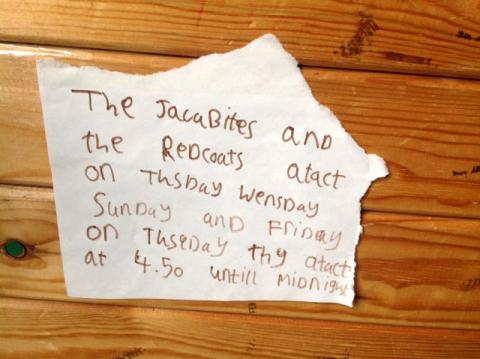 The JacaBites and
the REDcoats atact
on ThsDay WensDay
SunDay and FriDay
on ThseDay Thy atact
at 4.50 untill MiDnight